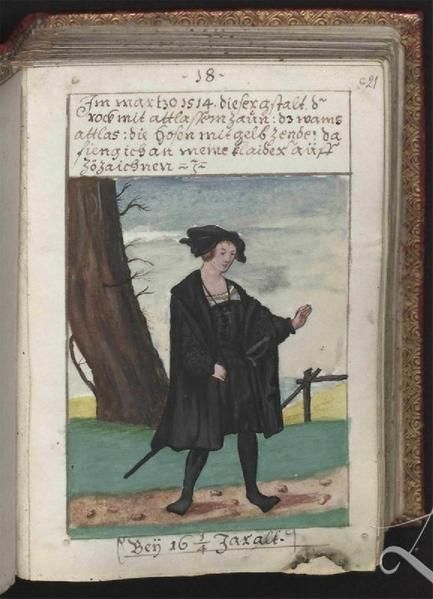 - 18 -
c21
Im martzo 1514. dieser gstalt. dr
rock mit attlassem zaün: dz wams
attlas: die hosen mit gelb zendel da
fieng ich an meine klaider aüff
Zözaichnen
Beÿ 16 1/4 Jar alt.